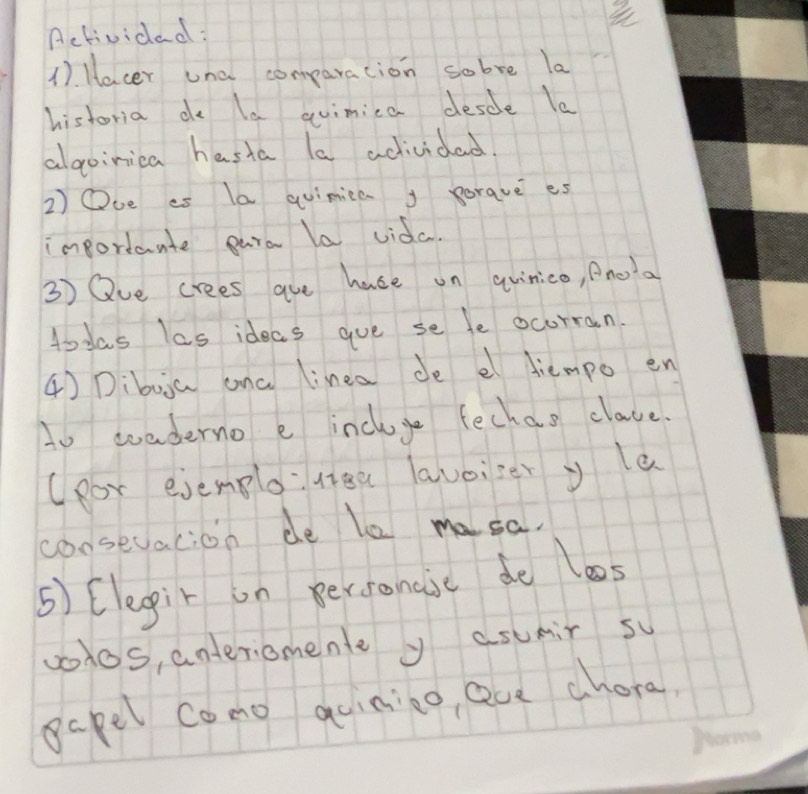 Actividad:
1). Hacer una comparación sobre la
historia de la quimica desde la
alquimica hasta la actividad.
2) Que es la quimica y porqué es
importante para la vida.
3) Que crees que hace un quimico, Anota
todas las ideas que se te ocurran.
4) Dibuja una linea de el tiempo en
tu cuaderno e incluye fechas clave.
(por ejemplo: lavoiser y la
consevación de la masa.
5) Elegir un personaje de los
votos, anteriomente y asumir su
papel como quimico, Que ahora,
Norma